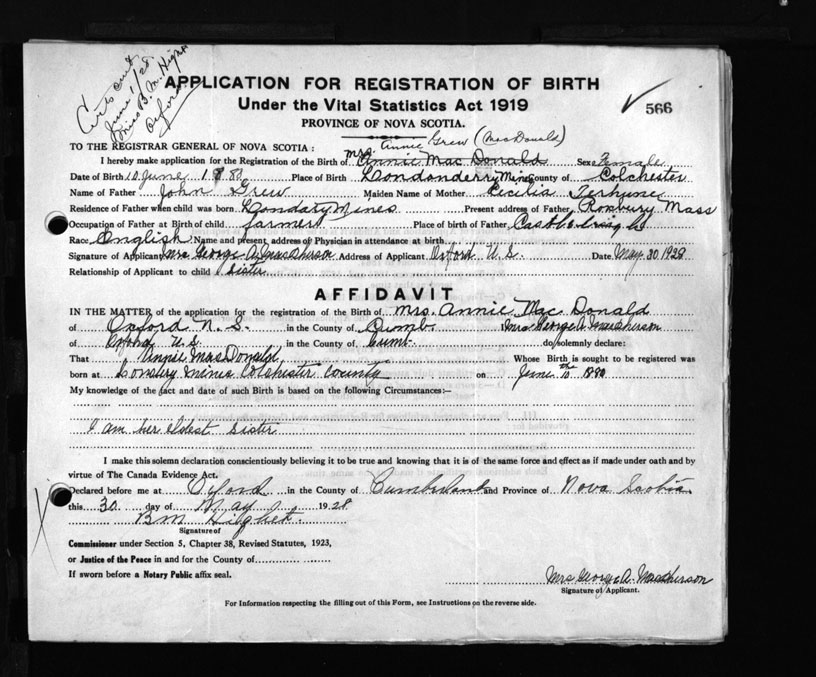 Certs out
June 1/28
Miss B. M. Hight
Oxford
APPLICATION FOR REGISTRATION OF BIRTH
Under the Vital Statistics Act 1919
566
PROVINCE OF NOVA SCOTIA.
Annie Grew (MacDonald)
TO THE REGISTRAR GENERAL OF NOVA SCOTIA :
I hereby make application for the Registration of the Birth of Mrs. Annie Mac Donald Sex Female
Date of Birth 10 June 1880 Place of Birth Londonderry Mines County of Colchester
Name of Father John Grew Maiden Name of Mother Cecilia
Residence of Father when child was born Mines Present address of Father Roxbury Mass
Occupation of Father at Birth of child farmer Place of birth of Father
Race English Name and present address of Physician in attendance at birth
Signature of Applicant Mrs. George A. MacPherson Address of Applicant Oxford N. S. Date May 30 1928
Relationship of Applicant to child Sister
AFFIDAVIT
IN THE MATTER of the application for the registration of the Birth of Mrs. Annie Mac Donald
of Oxford N. S. in the County of Cumb I Mrs George A. MacPherson
of Oxford N. S. in the County of Cumb. do solemnly declare:
That Annie MacDonald Whose Birth is sought to be registered was
born at Mines Colchester County on June 10th 1880
My knowledge of the fact and date of such Birth is based on the following Circumstances:—
I am her eldest sister
I make this solemn declaration conscientiously believing it to be true and knowing that it is of the same force and effect as if made under oath and by
virtue of The Canada Evidence Act.
Declared before me at Oxford in the County of Cumberland and Province of Nova Scotia
this 30 day of May 1928
B M Hight
Signature of
Commissioner under Section 5, Chapter 38, Revised Statutes, 1923,
or Justice of the Peace in and for the County of
If sworn before a Notary Public affix seal.
Mrs George A. MacPherson
Signature of Applicant.
For Information respecting the filling out of this Form, see Instructions on the reverse side.